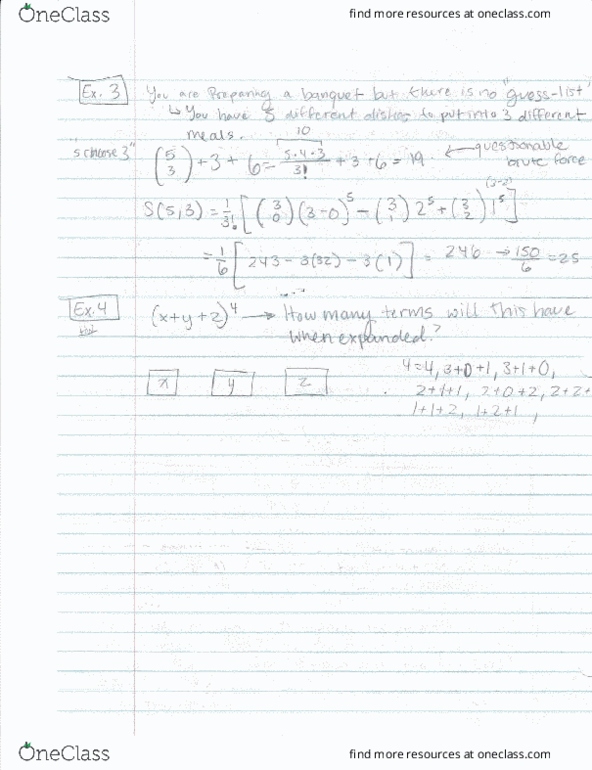 OneClass
find more resources at oneclass.com
Ex. 3 You are Preparing a banquet but there is no "guess-list"
↳ You have 5 different dishes to put into 3 different
meals.
"5 choose 3" (5 3) + 3 + 6 = 10 5·4·3 / 3! + 3 + 6 = 19. ← questionable
brute force
S(5,3) = 1/3! [ (3 0)(3-0)^5 - (3 1) 2^5 + (3 2) 1^5 ] (3-2)
= 1/6 [ 243 - 3(32) - 3(1) ] = 246 → 150/6 = 25
Ex. 4 (x+y+z)^4 → How many terms will this have
when expanded?
x y z
4=4, 3+0+1, 3+1+0,
2+1+1, 2+0+2, 2+2+
1+1+2, 1+2+1,
OneClass
find more resources at oneclass.com